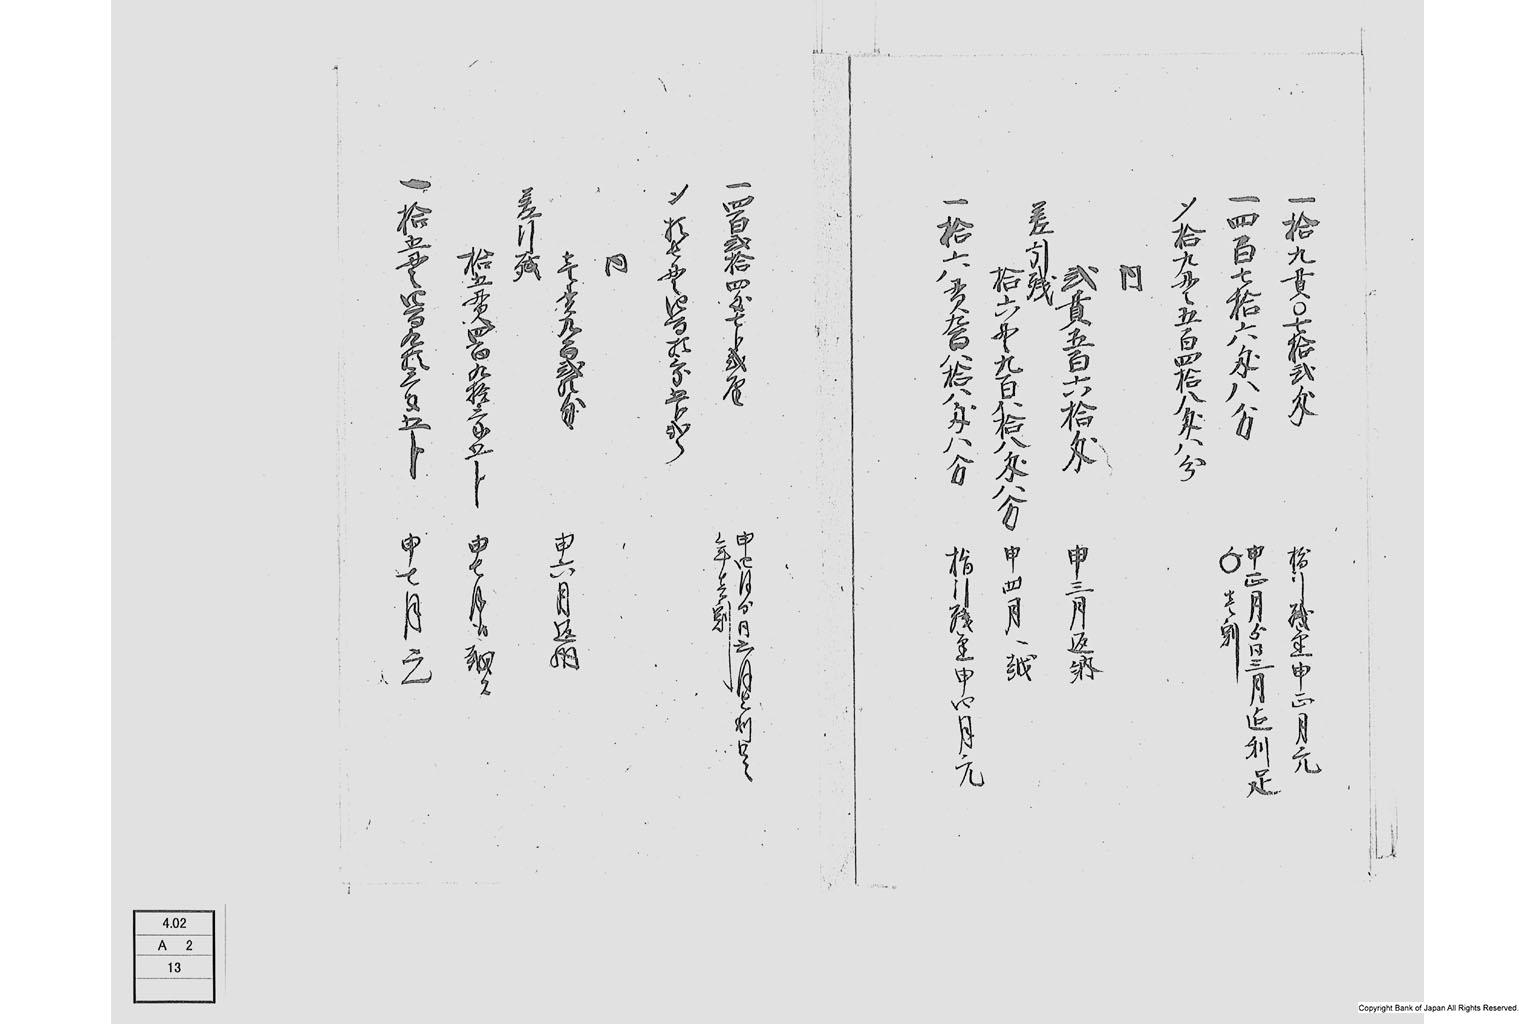 一拾九貫〇七拾弐匁 指引残金申正月元
一四百七拾六匁八分 申正月ゟ同三月迄利足
〇壱割
〆拾九貫五百四拾八匁八分
内
弐貫五百六拾匁 申三月返納
差引残
拾六貫九百八拾八匁八分 申四月へ越
一拾六貫九百八拾八匁八分 指引残金申四月元
一四百弐拾四匁七分弐厘 申四月ゟ同六月迄利足
年壱割
〆拾七貫四百拾三匁五分弐り
内
壱貫九百弐拾匁 申六月返納
差引残
拾五貫四百九拾三匁五分 申七月
一拾五貫四百九拾三匁五分 申七月元
4.02
A 2
13
Copyright Bank of Japan All Rights Reserved.